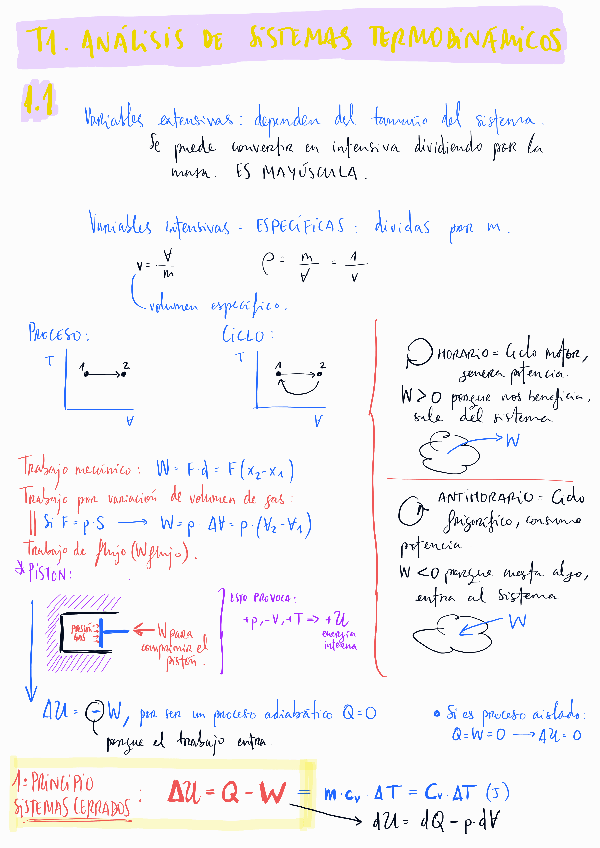 T1. ANÁLISIS DE SISTEMAS TERMODINÁMICOS
1.1
Variables extensivas: dependen del tamaño del sistema.
Se puede convertir en intensiva dividiendo por la
masa. ES MAYÚSCULA.
Variables intensivas - ESPECÍFICAS: dividas por m.
v = V/m    ρ = m/V = 1/v
volumen específico.
PROCESO:
T
1 2
V
CICLO:
T
1 2
V
HORARIO = Ciclo motor,
genera potencia.
W > 0 porque nos beneficia,
sale del sistema
W
ANTIHORARIO = Ciclo
frigorífico, consume
potencia
W < 0 porque cuesta algo,
entra al sistema
W
Trabajo mecánico: W = F·d = F(x₂-x₁)
Trabajo por variación de volumen de gas:
|| Si F = p·S → W = p ΔV = p·(V₂-V₁)
Trabajo de flujo (Wflujo).
* PISTÓN:
GAS
W para
comprimir el
pistón.
ESTO PROVOCA:
+p, -V, +T → +U
energía
interna
ΔU = -W, por ser un proceso adiabático Q=0
porque el trabajo entra
• Si es proceso aislado:
Q=W=0 → ΔU=0
1º PRINCIPIO
SISTEMAS CERRADOS: ΔU = Q - W = m·cᵥ·ΔT = Cᵥ·ΔT (J)
dU = dQ - p·dV